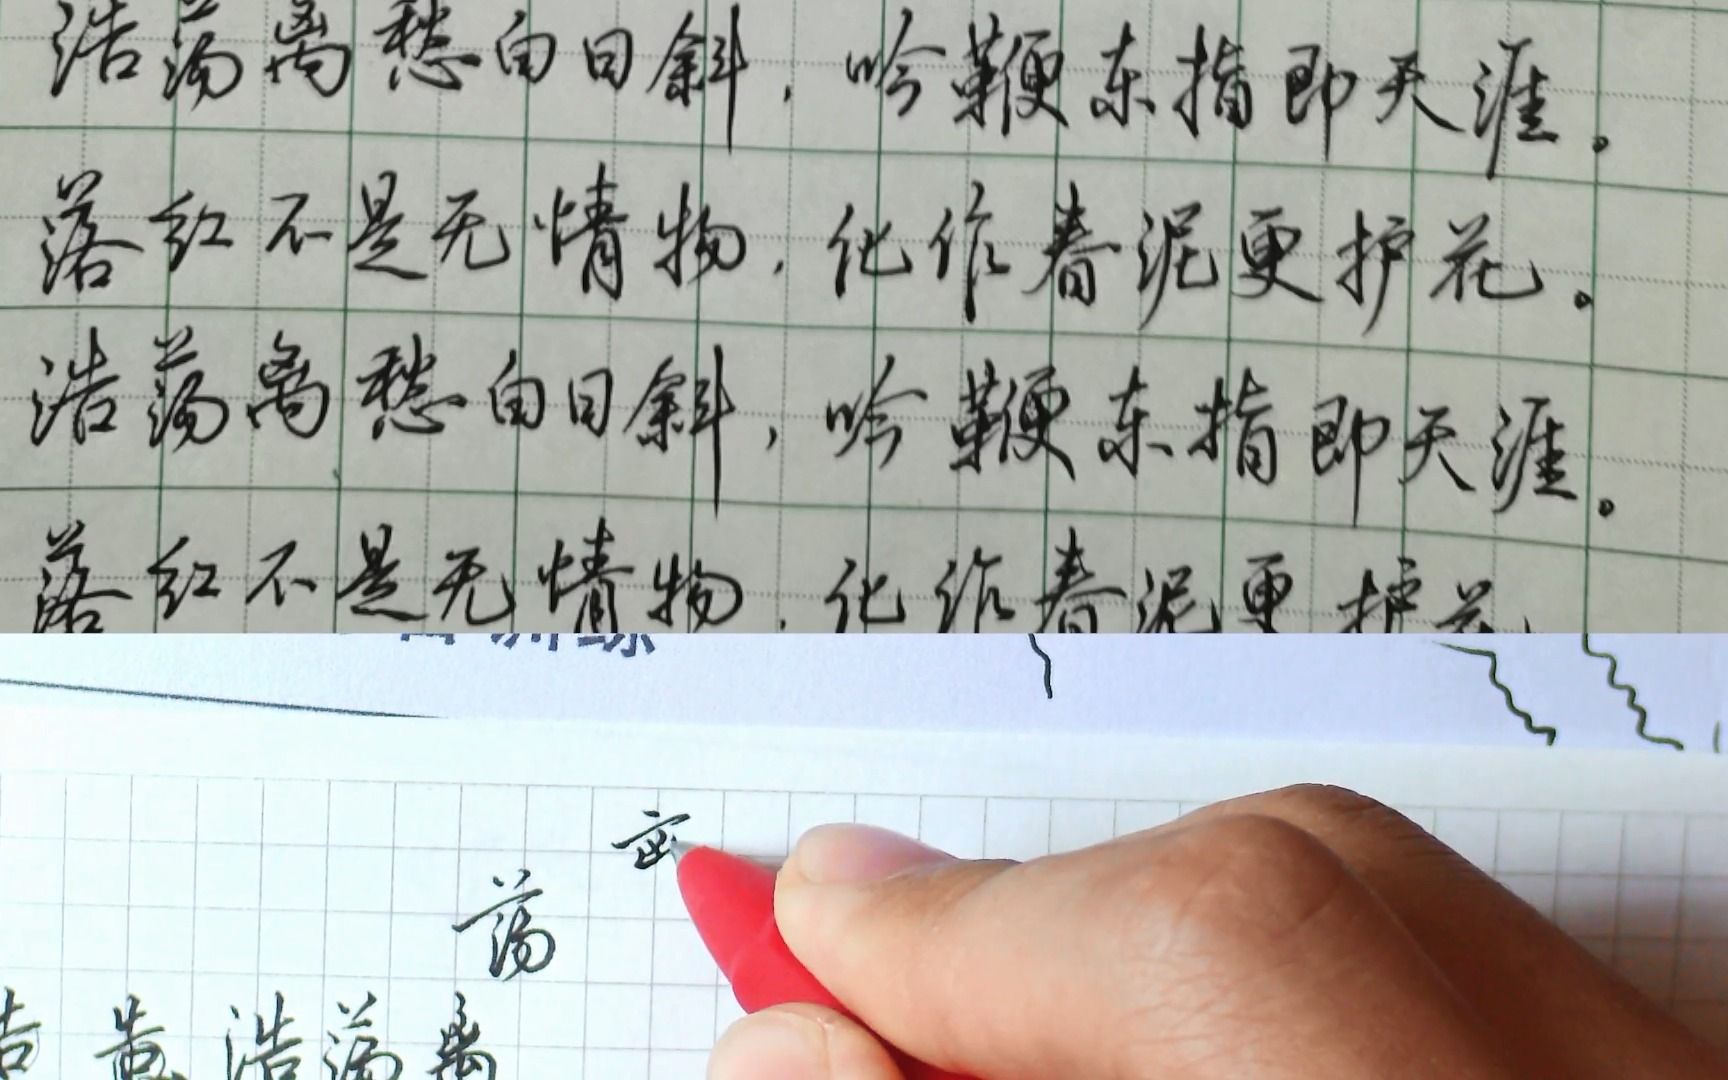 浩荡离愁白日斜，吟鞭东指即天涯。
落红不是无情物，化作春泥更护花。
浩荡离愁白日斜，吟鞭东指即天涯。
落红不是无情物，化作春泥更护花
荡
浩荡离